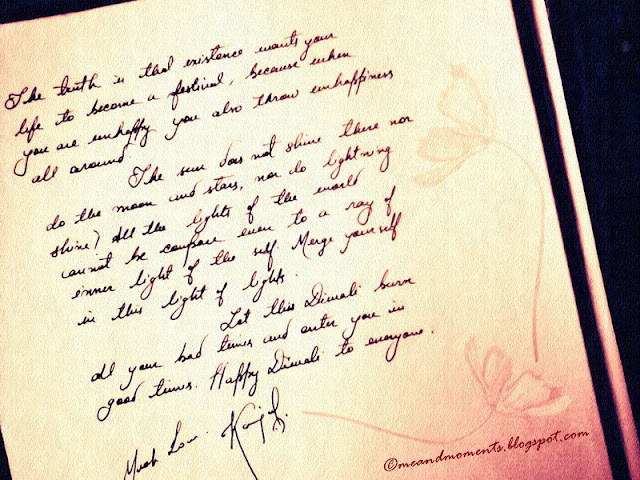 The truth is that existence wants your
life to become a festival, because when
you are unhappy you also throw unhappiness
all around.
The sun does not shine there nor
do the moon and stars, nor do lightning
shine) All the lights of the world
cannot be compare even to a ray of
inner light of the self. Merge yourself
in this light of lights.
Let this Diwali burn
all your bad times and enter you in
good times. Happy Diwali to everyone.
Much Love.
©meandmoments.blogspot.com